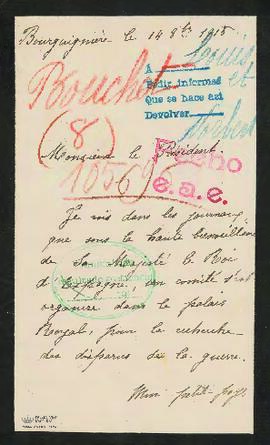 Bourguignière le 14 8bre 1915
Louis
et
Norbert
Bouchet
(8)
A
Pedir informes
Que se hace así
Devolver
Monsieur le Président,
Hecho
e.a.e.
Je vis dans les journaux
que sous la haute bienveillance
de Sa Majesté le Roi
de l'Espagne, un comité s'est
organisé dans le palais
Royal, pour la recherche
des disparus de la guerre.
Mon petit-fils,